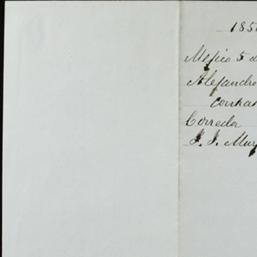 185
Mejico 5 d
Alejandro
contra
Corredor
J. J. Mur